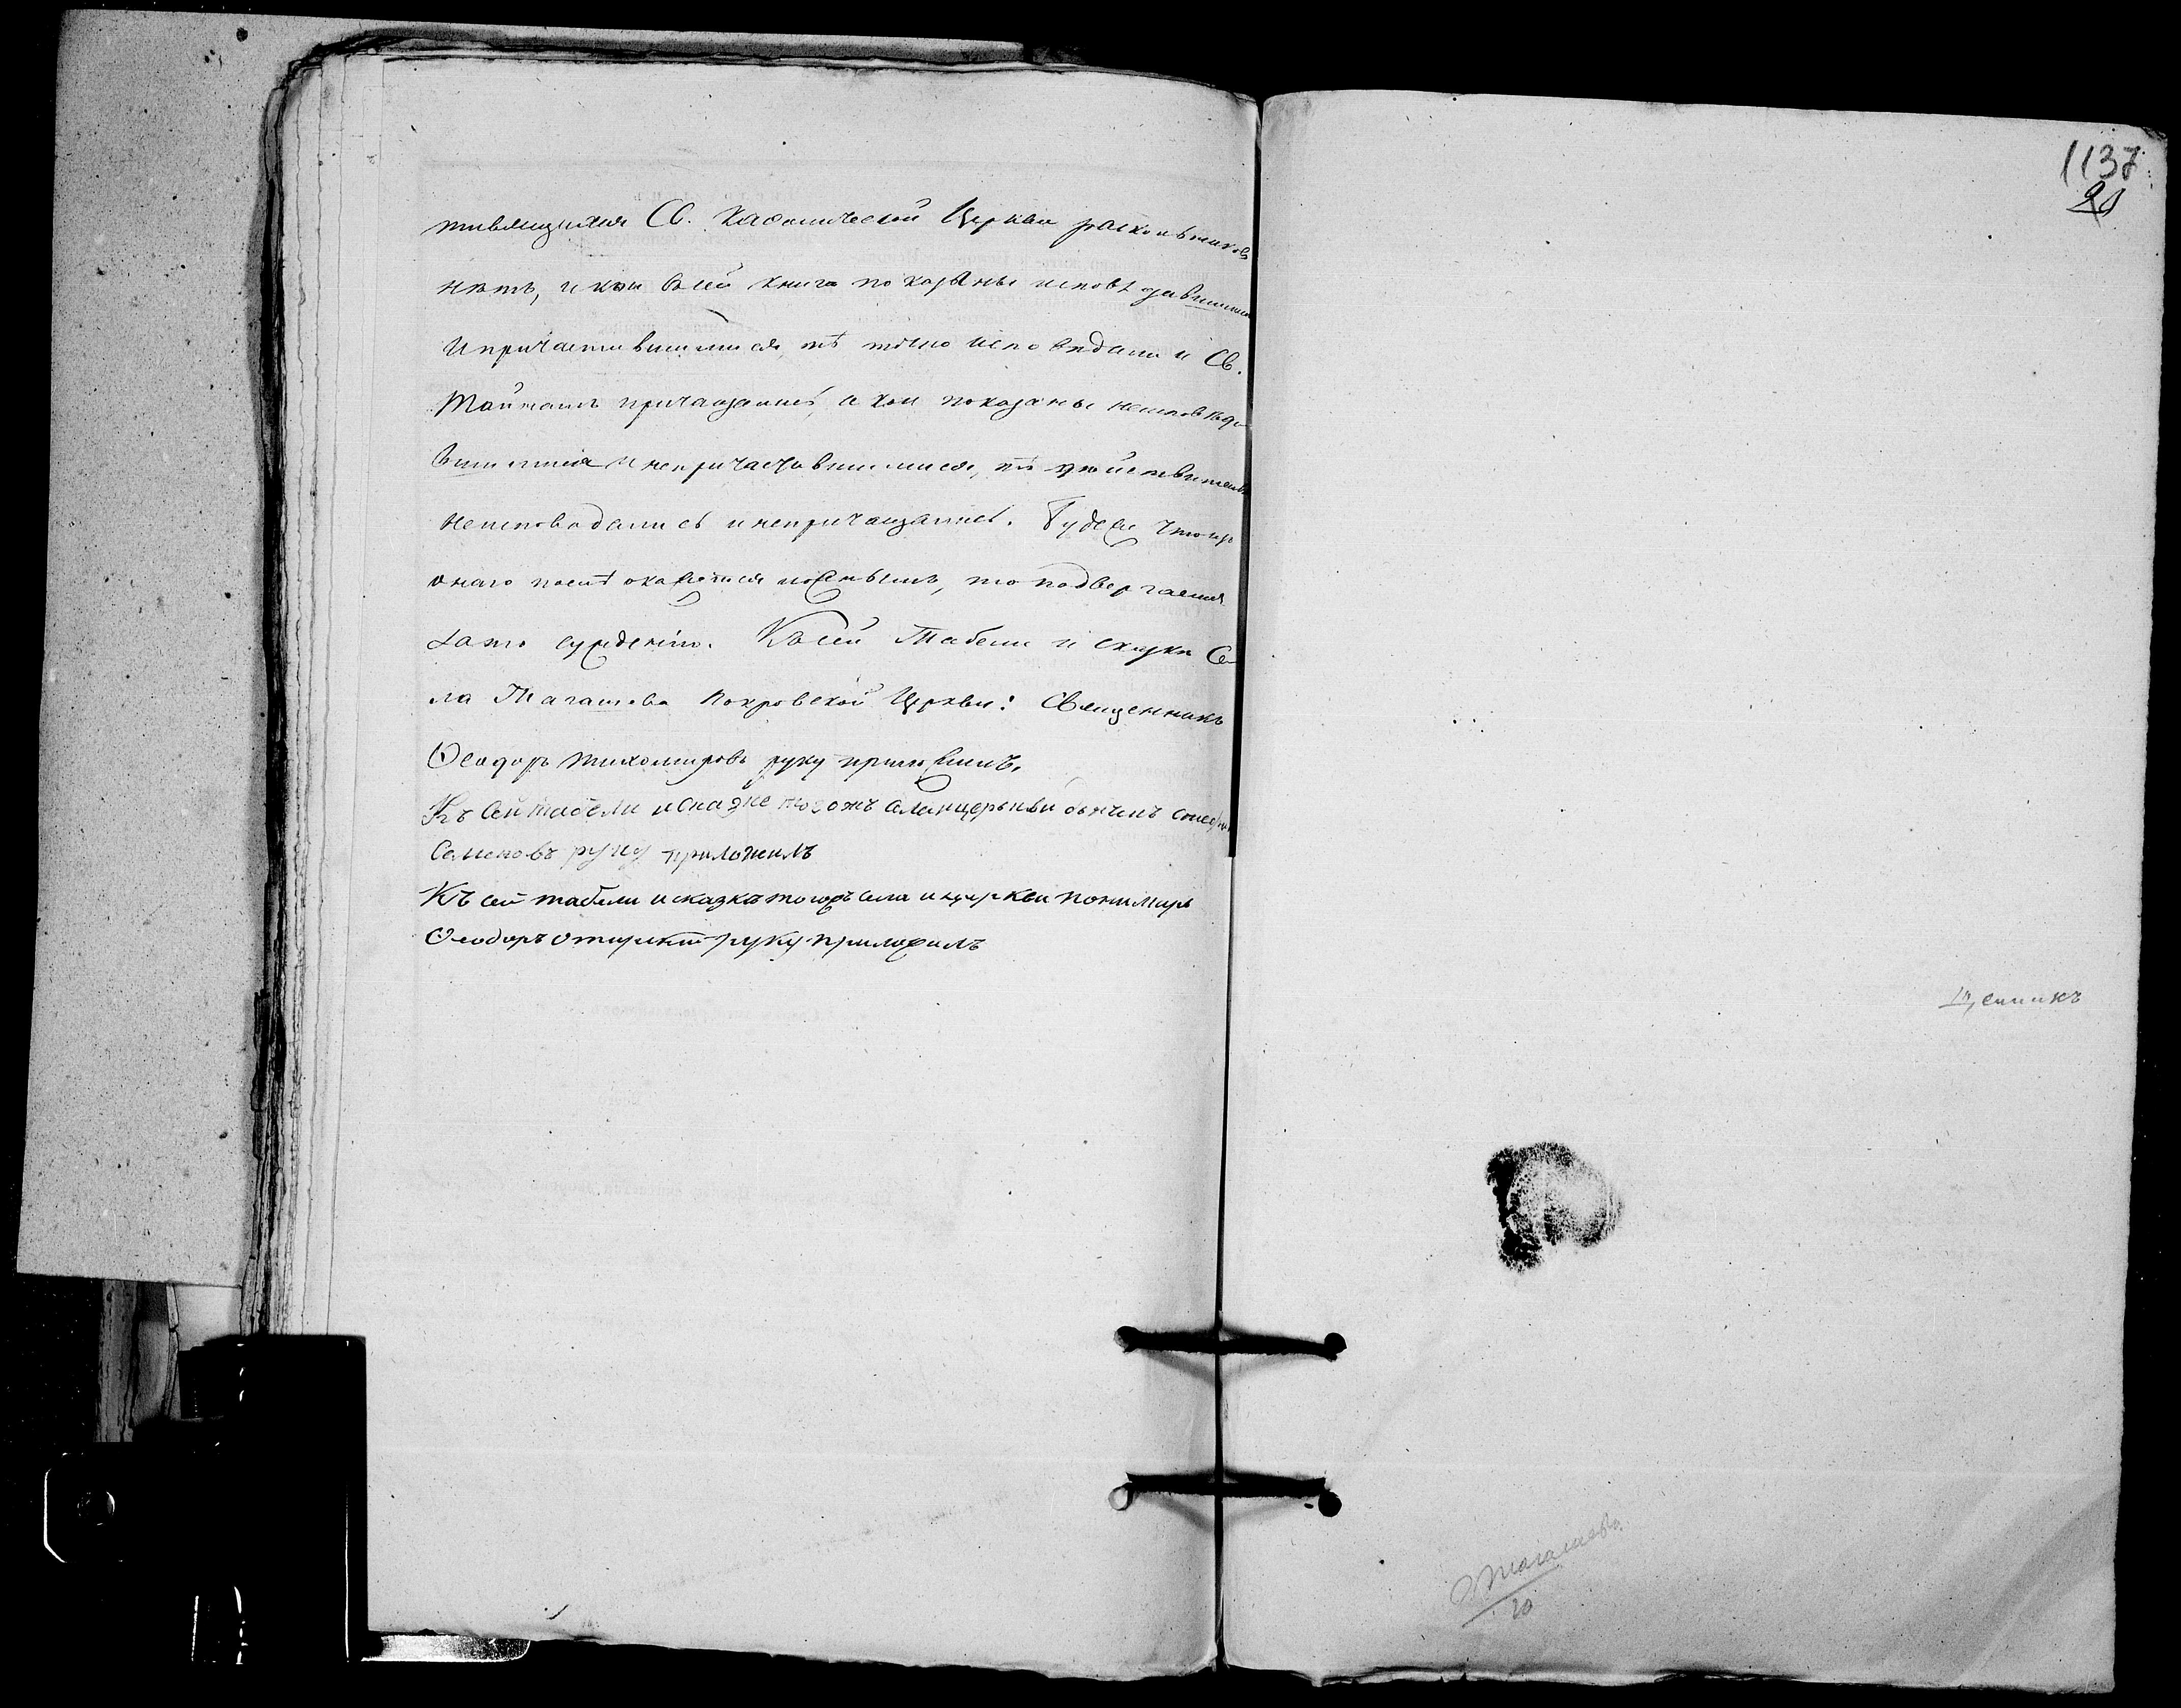 тивящихся Св. Каѳолической Церкви раскольниковъ
нѣтъ, и кои въ сей книгѣ показаны исповѣдавшимися
и причастившимися, тѣ точно исповѣдали и Св.
Тайнамъ причащались, а кои показаны неисповѣда-
вшимися и непричастившимися, тѣ дѣйствительно
неисповѣдались и непричащались. Будеже что изъ
онаго послѣ окажется ложнымъ, то подвергаемъ
сужденію. Къ сей табели и сказкѣ се-
ла Тагашева Покровской Церкви: Священникъ
Ѳеодоръ Тихомировъ руку приложилъ.
Къ сей табели и сказке тогожъ села и церькви
Семеновъ руку приложилъ
Къ сей табели и сказкѣ тогожъ села и церкви пономарь
Ѳеодоръ руку приложилъ
1137
20
Тагашева
20